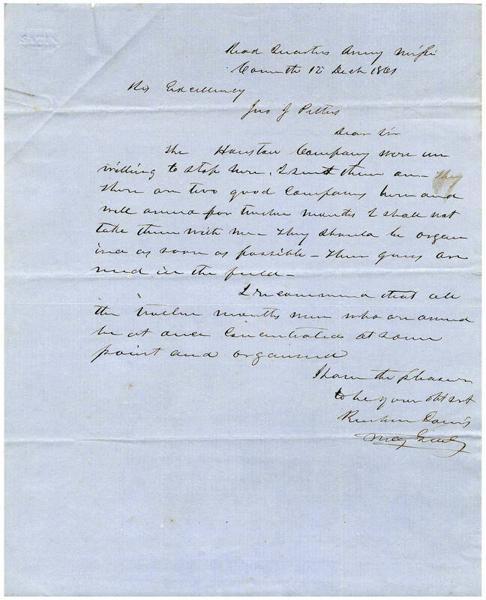 Head Quarters Army Missi
Corinth 12 Dech 1861
His Excellency
Jno J Pettus
Dear Sir
The Houston Company were un
willing to stop here, I sent them on—They
There are two good Companies here and
well armed for twelve months I shall not
take them with me— They should be organ
ized as soon as possible— Their guns are
need in the field—
I recommend that all
the twelve months men who are armed
be at once concentrated at some
point and organised
I have the pleasure
to be your obt svt
Reuben Davis
Maj Genl